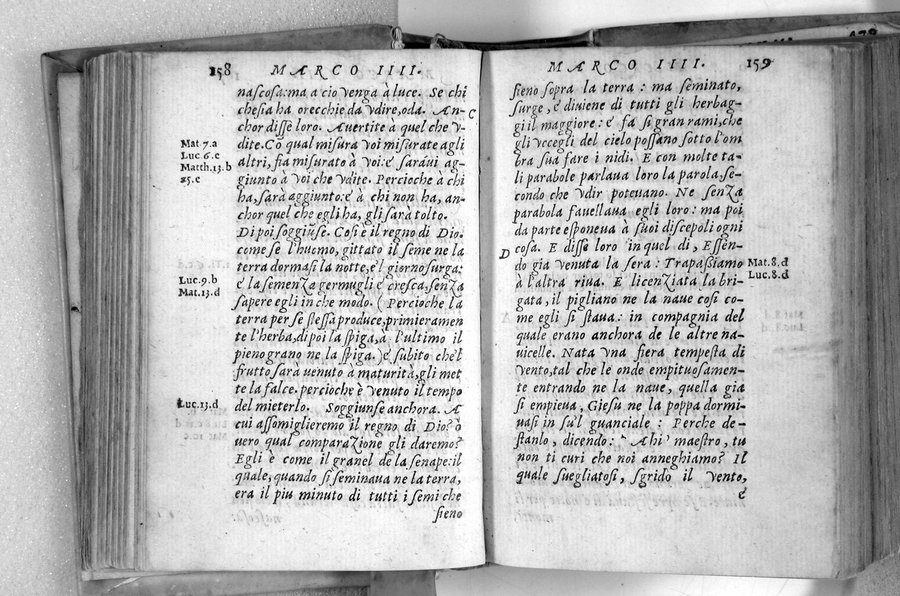 158 MARCO IIII.
nascosa: ma a cio venga à luce. Se chi
che sia ha orecchie da vdire, oda. An-
C
chor disse loro. Avertite a quel che v-
dite. Cō qual misura voi misurate agli
altri, fia misurato à voi: e saràui ag-
giunto à voi che vdite. Percioche à chi
ha, sarà aggiunto: è à chi non ha, an-
chor quel che egli ha, gli sarà tolto.
Di poi soggiūse. Così è il regno di Dio:
come se l'huomo, gittato il seme ne la
terra dormasi la notte, e'l giorno surga:
è la semenza germugli è cresca, senza
sapere egli in che modo. (Percioche la
terra per se stessa produce, primieramen
te l'herba, di poi la spiga, à l'ultimo il
pieno grano ne la spiga.) è subito che'l
frutto sarà venuto à maturità, gli met
te la falce. percioche è venuto il tempo
del mieterlo. Soggiunse anchora. A
cui assomiglieremo il regno di Dio? ò
vero qual comparazione gli daremo?
Egli è come il granel de la senape: il
quale, quando si seminava ne la terra,
era il piu minuto di tutti i semi che
sieno
Mat 7.a
Luc 6.e
Matth.13.b
25.c
Luc.9.b
Mat.13.d
Luc.13.d
MARCO IIII. 159
sieno sopra la terra: ma seminato,
surge, è diviene di tutti gli herbag-
gi il maggiore: è fa si gran rami, che
gli vccegli del cielo possano sotto l'om
bra sua fare i nidi. E con molte ta-
li parabole parlaua loro la parola, se-
condo che vdir poteuano. Ne senza
parabola fauellaua egli loro: ma poi
da parte esponeua à suoi discepoli ogni
cosa. E disse loro in quel dì, Essen-
D
do gia venuta la sera: Trapassiamo
à l'altra riua. E licenziata la bri-
gata, il pigliano ne la naue così co-
me egli si staua: in compagnia del
quale erano anchora de le altre na-
uicelle. Nata vna fiera tempesta di
vento, tal che le onde empituosamen-
te entrando ne la naue, quella gia
si empieua, Giesu ne la poppa dormi-
uasi in su'l guanciale: Perche de-
stanlo, dicendo: Ahi maestro, tu
non ti curi che noi anneghiamo? Il
quale suegliatosi, sgrido il vento,
è
Mat.8.d
Luc.8.d